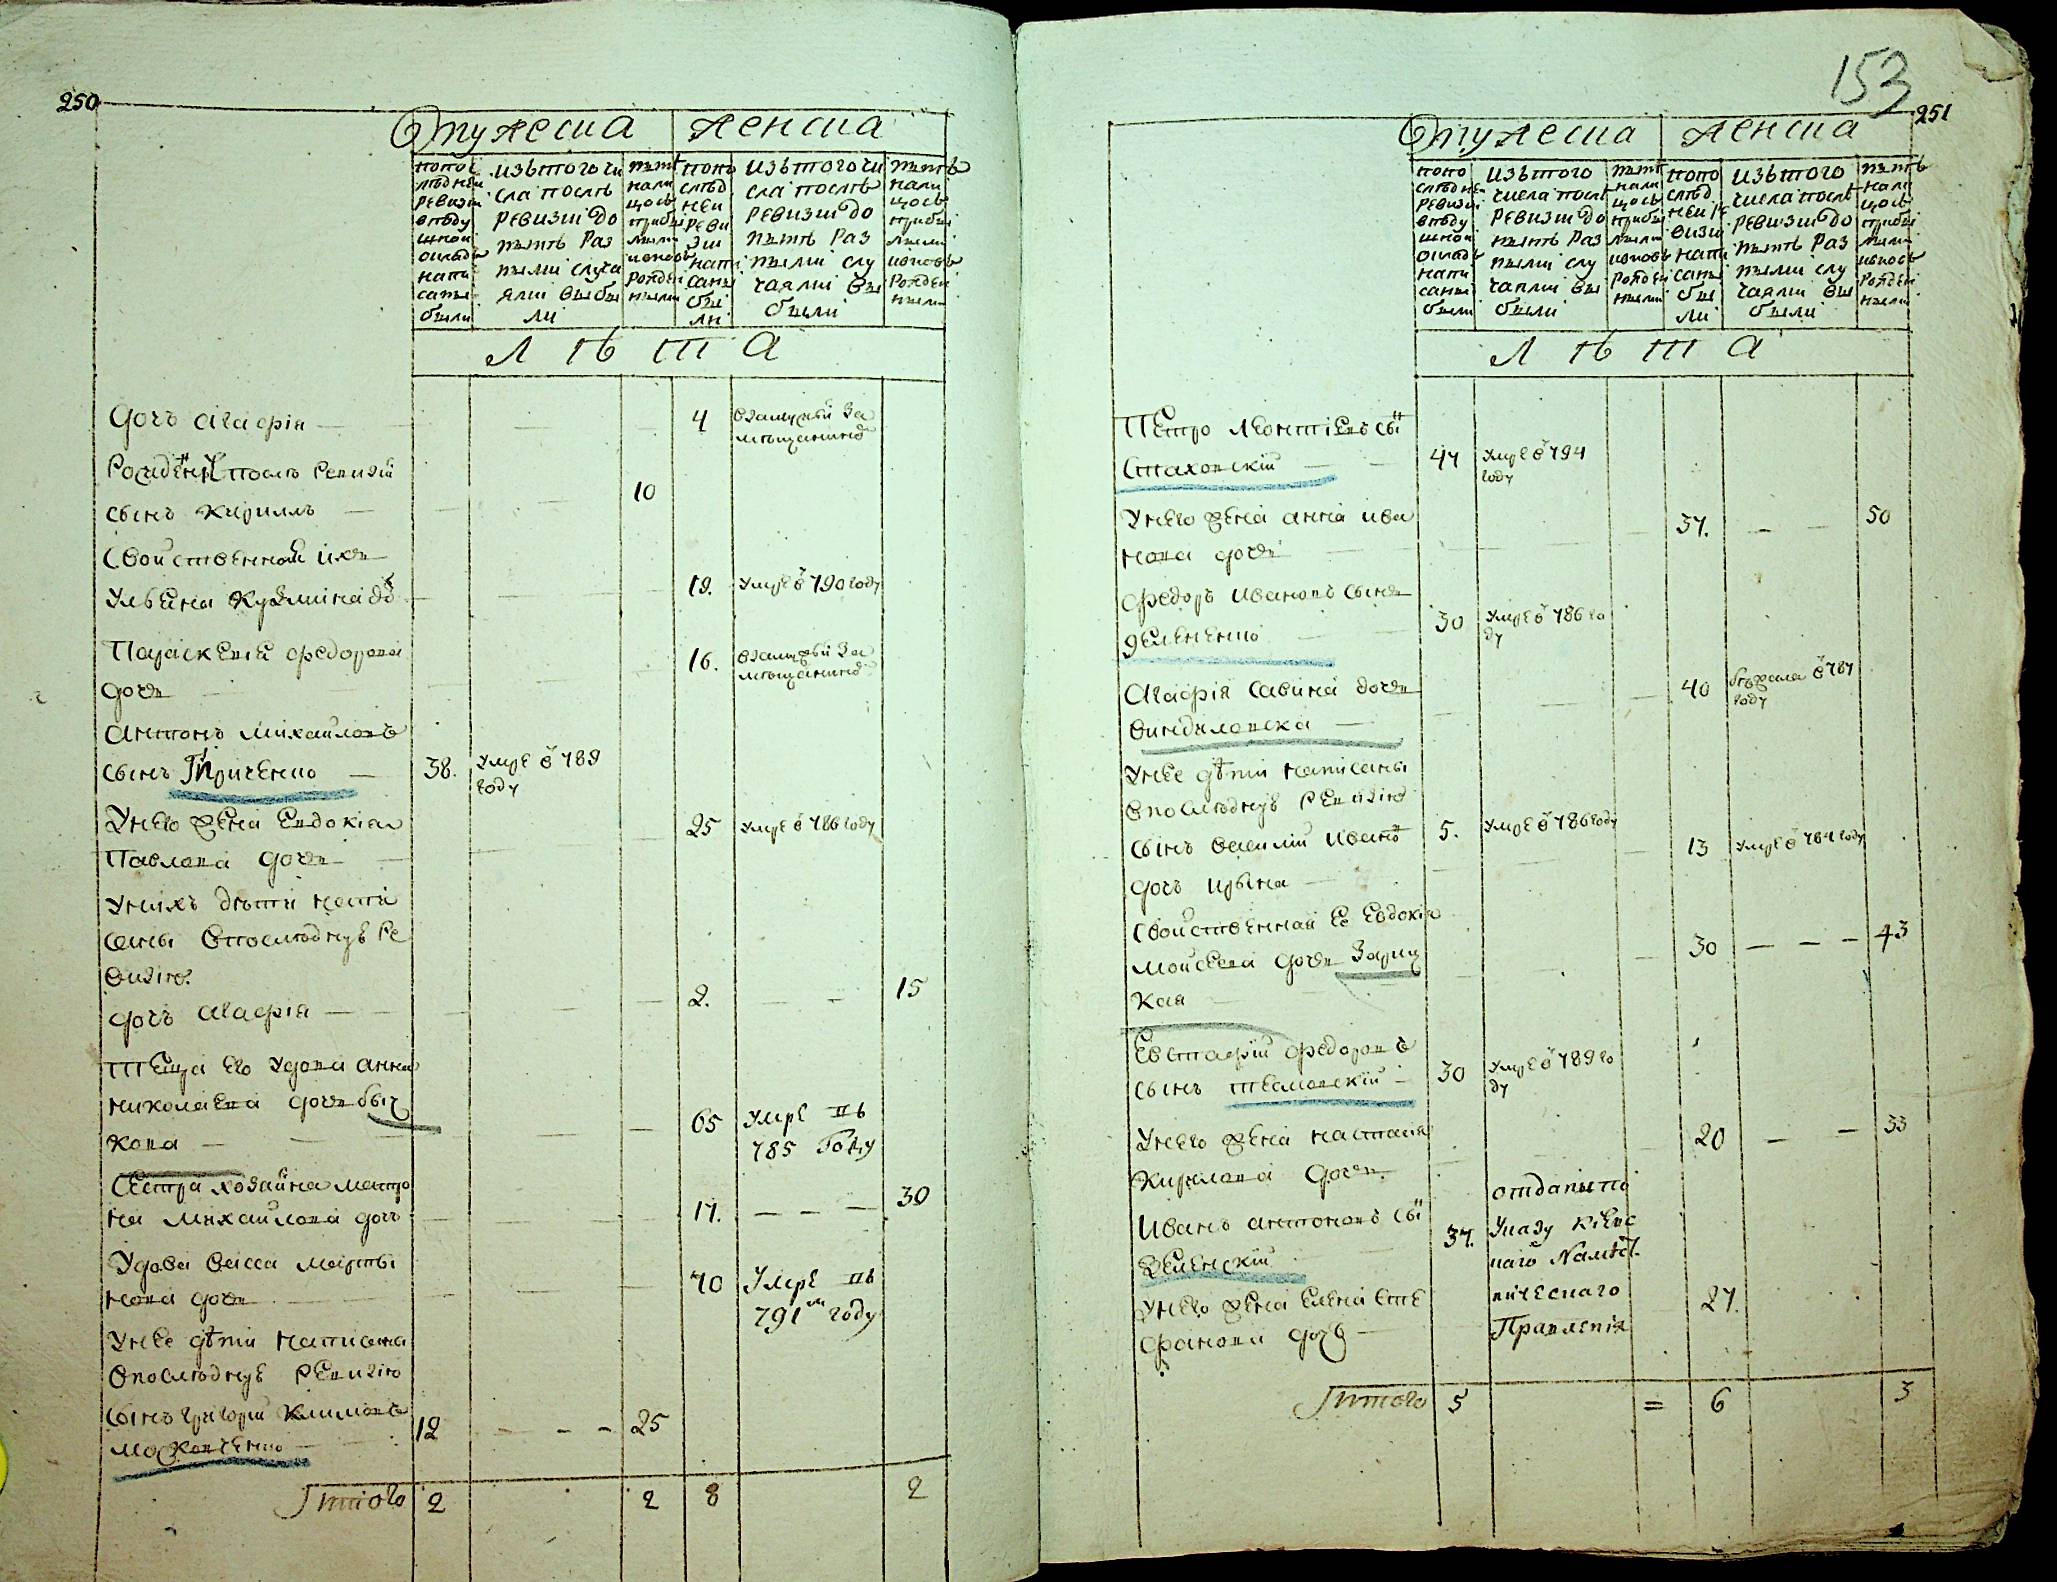 250
Мужеска Женска
по пос
лѣдней
ревизіи
в пѣду
шной
окладъ
напи
саны
были
изъ того чи
сла послѣ
ревизіи до
нынѣ раз
ными случа
ями выбы
ли
нынѣ
нали
цо съ
прибы
лыми
и вновь
рожден
ными
по по
слѣд
ней
реви
зіи
напи
саны
бы
ли
изъ того чи
сла послѣ
ревизіи до
нынѣ раз
ными слу
чаями вы
были
нынѣ
нали
цо съ
прибы
лыми
и вновь
рожден
ными
Л ѣ т а
дочъ агафія 4 взамужъй за
мѣщаниномъ
Рожденъ послѣ ревизій
сынъ кирилъ 10
Свойственной ихъ
Ульяна Кузмина до 19. Умре в 790 году
Параскевія федорова
дочь 16. взамужъй за
мѣщаниномъ
Антонъ Михаиловъ
сынъ Гриченко 38. Умре в 789
году
У него жена Евдокія
Павлова дочь 25 Умре в 786 году
У нихъ дѣти напи
саны в последную ре
визію
дочъ агафія 2. 15
теща его удова анна
николаева дочь быч
кова 65 Умре въ
785 Году
Сестра хозяина матро
на Михаилова дочъ 17. 30
Удова васса марты
нова дочь 70 Умре въ
791 году
У нее дѣти написаны
в последную ревизію
сынъ григорій Климовъ
московченко 12 25
Итого 2 2 8 2
153
251
Мужеска Женска
по по
слѣдней
ревизіи
в пѣду
шной
окладъ
напи
саны
были
изъ того
числа послѣ
ревизіи до
нынѣ раз
ными слу
чаями вы
были
нынѣ
нали
цо съ
прибы
лыми
и вновь
рожден
ными
по по
слѣд
ней ре
визіи
напи
саны
бы
ли
изъ того
числа послѣ
ревизіи до
нынѣ раз
ными слу
чаями вы
были
нынѣ
нали
цо съ
прибы
лыми
и вновь
рожден
ными
Л ѣ т а
Петро Леонтіевъ сы
Стаховскій 47 Умре в 794
году
У него жена анна ива
нова дочь 37. 50
Федоръ Ивановъ сынъ
30 Умре в 786 го
ду
Агафія Савина дочь
40 в 787
году
У нее дѣти написаны
в последную ревизію
сынъ василій Ивано 5. Умре в 786 году
дочъ ирина 13 Умре в 784 году
Свойственная ее Евдокія
Моисеева дочь Зариц
кая 30 43
Евстафій федоровъ
сынъ 30 Умре в 789 го
ду
У него жена настасія
Кирилова дочь 20 33
Иванъ антоновъ сы
37. отданъ по
Указу Кіевс
каго Намѣст
ническаго
Правленія
У него жена елена сте
фанова дочь 27.
Итого 5 = 6 3